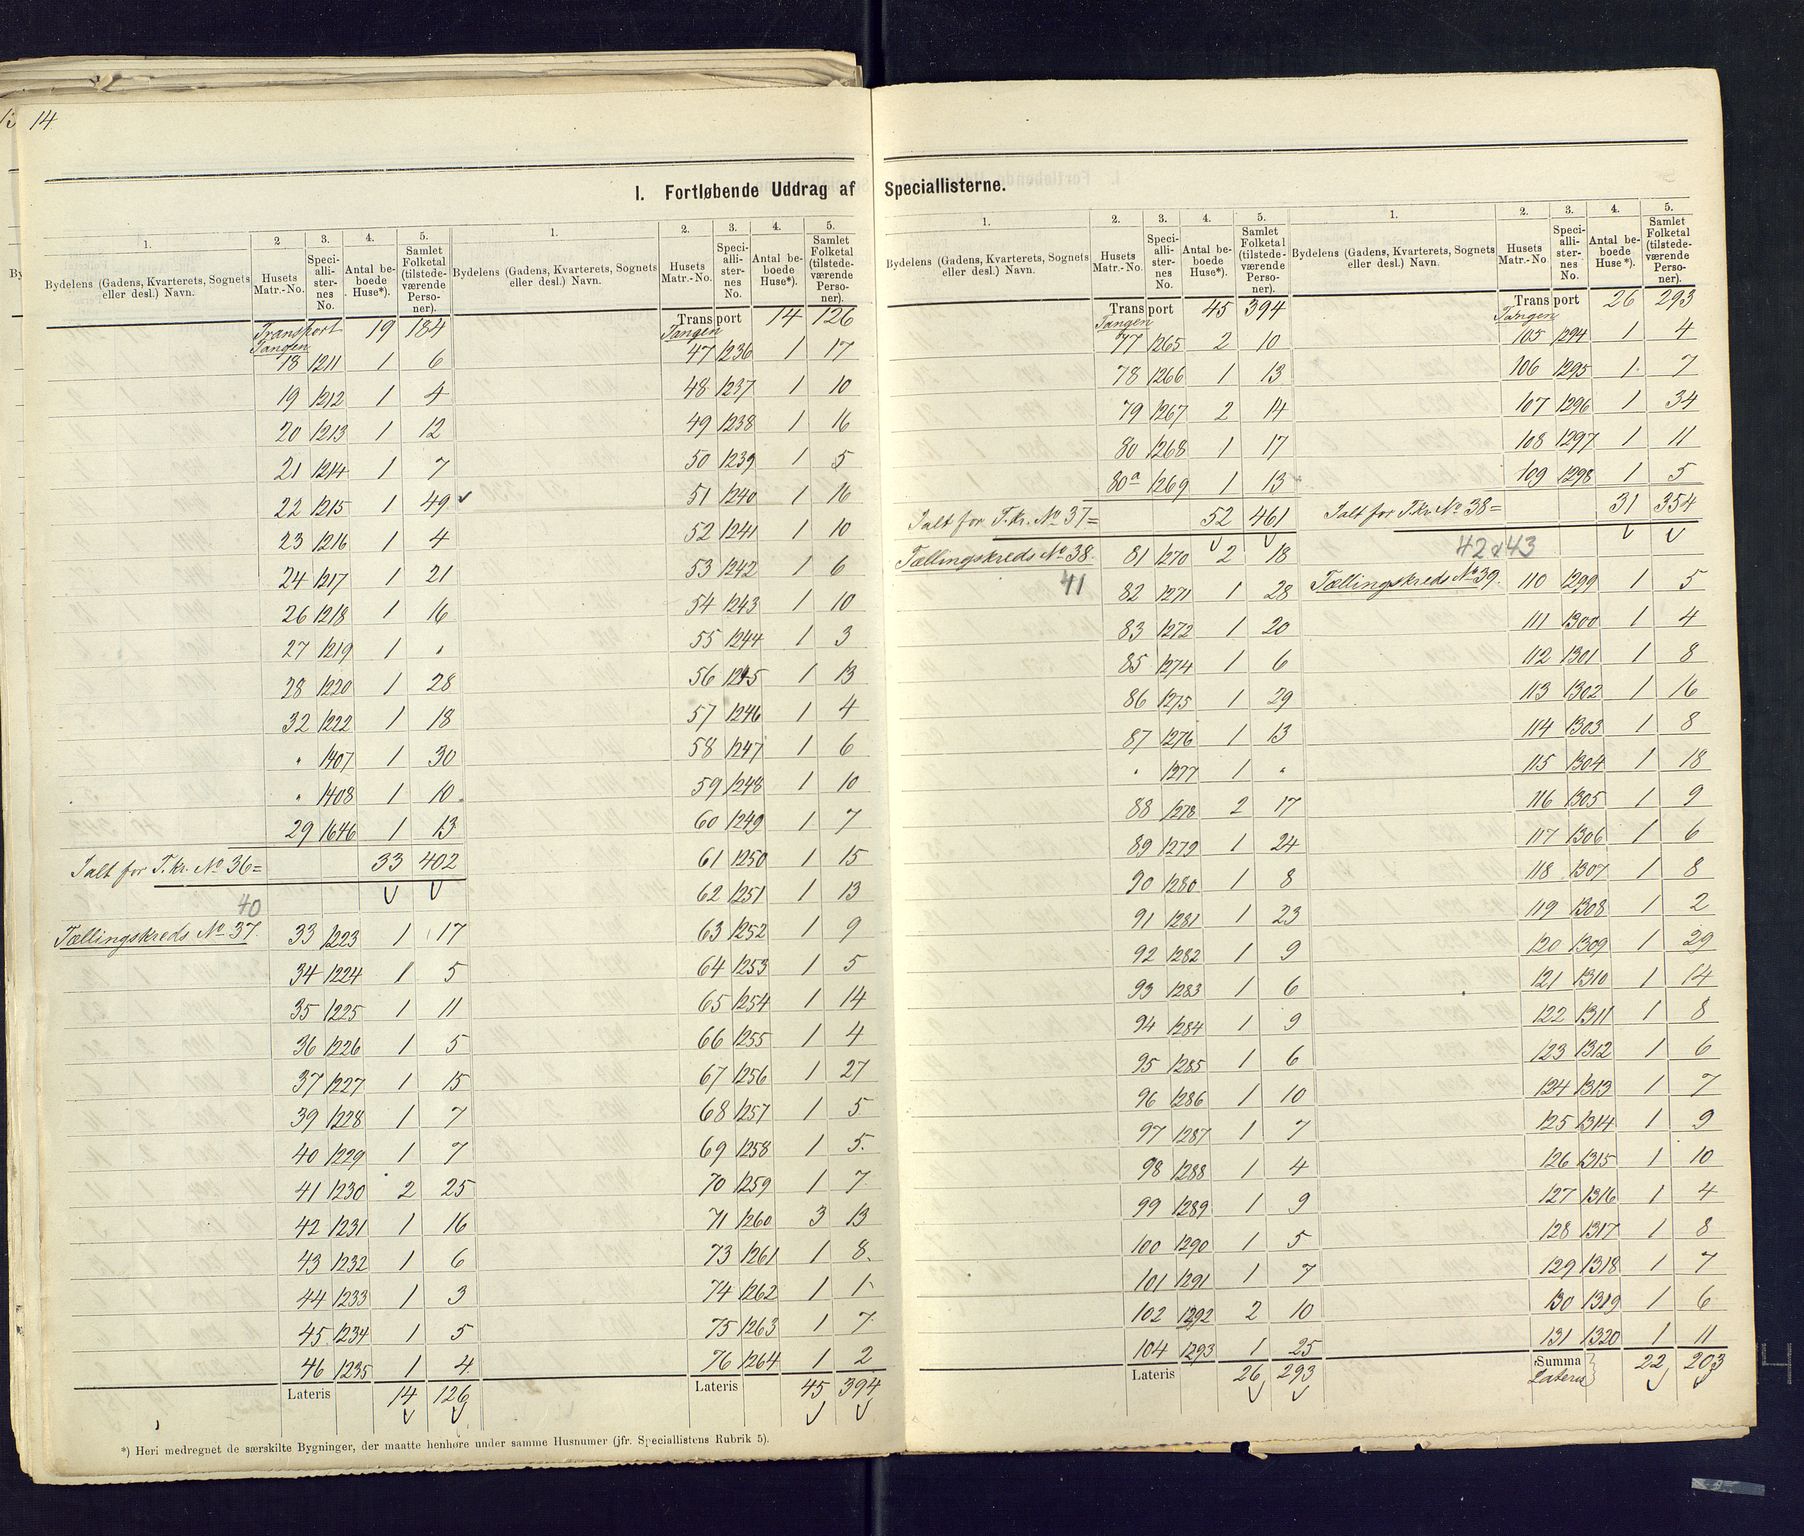 14
I. Fortløbende Uddrag af Speciallisterne.
1. 2 3. 4. 5.
Bydelens (Gadens, Kvarterets, Sognets eller desl.) Navn. Husets Matr.-No. Speciallisternes No. Antal beboede Huse*). Samlet Folketal (tilstedeværende Personer).
Transport 19 184
Tangen
18 1211 1 6
19 1212 1 4
20 1213 1 12
21 1214 1 7
22 1215 1 49
23 1216 1 4
24 1217 1 21
26 1218 1 16
27 1219 1 "
28 1220 1 28
32 1222 1 18
" 1407 1 30
" 1408 1 10
29 1646 1 13
Ialt for T.kr. No 36= 33 402
40
Tællingskreds No 37. 33 1223 1 17
34 1224 1 5
35 1225 1 11
36 1226 1 5
37 1227 1 15
39 1228 1 7
40 1229 1 7
41 1230 2 25
42 1231 1 16
43 1232 1 6
44 1233 1 3
45 1234 1 5
46 1235 1 4
Lateris 14 126
1. 2. 3. 4. 5.
Bydelens (Gadens, Kvarterets, Sognets eller desl.) Navn. Husets Matr.-No. Speciallisternes No. Antal beboede Huse*). Samlet Folketal (tilstedeværende Personer).
Transport 14 126
Tangen
47 1236 1 17
48 1237 1 10
49 1238 1 16
50 1239 1 5
51 1240 1 16
52 1241 1 10
53 1242 1 6
54 1243 1 10
55 1244 1 3
56 1245 1 13
57 1246 1 4
58 1247 1 6
59 1248 1 10
60 1249 1 7
61 1250 1 15
62 1251 1 13
63 1252 1 9
64 1253 1 5
65 1254 1 14
66 1255 1 4
67 1256 1 27
68 1257 1 5
69 1258 1 5
70 1259 1 7
71 1260 3 13
73 1261 1 8
74 1262 1 1
75 1263 1 7
76 1264 1 2
Lateris 45 394
*) Heri medregnet de særskilte Bygninger, der maatte henhøre under samme Husnumer (jfr. Speciallistens Rubrik 5).
1. 2. 3. 4. 5.
Bydelens (Gadens, Kvarterets, Sognets eller desl.) Navn. Husets Matr.-No. Speciallisternes No. Antal beboede Huse*). Samlet Folketal (tilstedeværende Personer).
Transport 45 394
Tangen
77 1265 2 10
78 1266 1 13
79 1267 2 14
80 1268 1 17
80a 1269 1 13
Ialt for T.kr. No 37= 52 461
Tællingskreds No 38. 81 1270 2 18
41
82 1271 1 28
83 1272 1 20
85 1274 1 6
86 1275 1 29
87 1276 1 13
" 1277 1 "
88 1278 2 17
89 1279 1 24
90 1280 1 8
91 1281 1 23
92 1282 1 9
93 1283 1 6
94 1284 1 9
95 1285 1 6
96 1286 1 10
97 1287 1 7
98 1288 1 4
99 1289 1 9
100 1290 1 5
101 1291 1 7
102 1292 2 10
104 1293 1 25
Lateris 26 293
1. 2. 3. 4. 5.
Bydelens (Gadens, Kvarterets, Sognets eller desl.) Navn. Husets Matr.-No. Speciallisternes No. Antal beboede Huse*). Samlet Folketal (tilstedeværende Personer).
Transport 26 293
Tangen
105 1294 1 4
106 1295 1 7
107 1296 1 34
108 1297 1 11
109 1298 1 5
Ialt for T.kr. No 38= 31 354
42 & 43
Tællingskreds No 39. 110 1299 1 5
111 1300 1 4
112 1301 1 8
113 1302 1 16
114 1303 1 8
115 1304 1 18
116 1305 1 9
117 1306 1 6
118 1307 1 8
119 1308 1 2
120 1309 1 29
121 1310 1 14
122 1311 1 8
123 1312 1 6
124 1313 1 7
125 1314 1 9
126 1315 1 10
127 1316 1 4
128 1317 1 8
129 1318 1 7
130 1319 1 6
131 1320 1 11
Summa Lateris 22 203